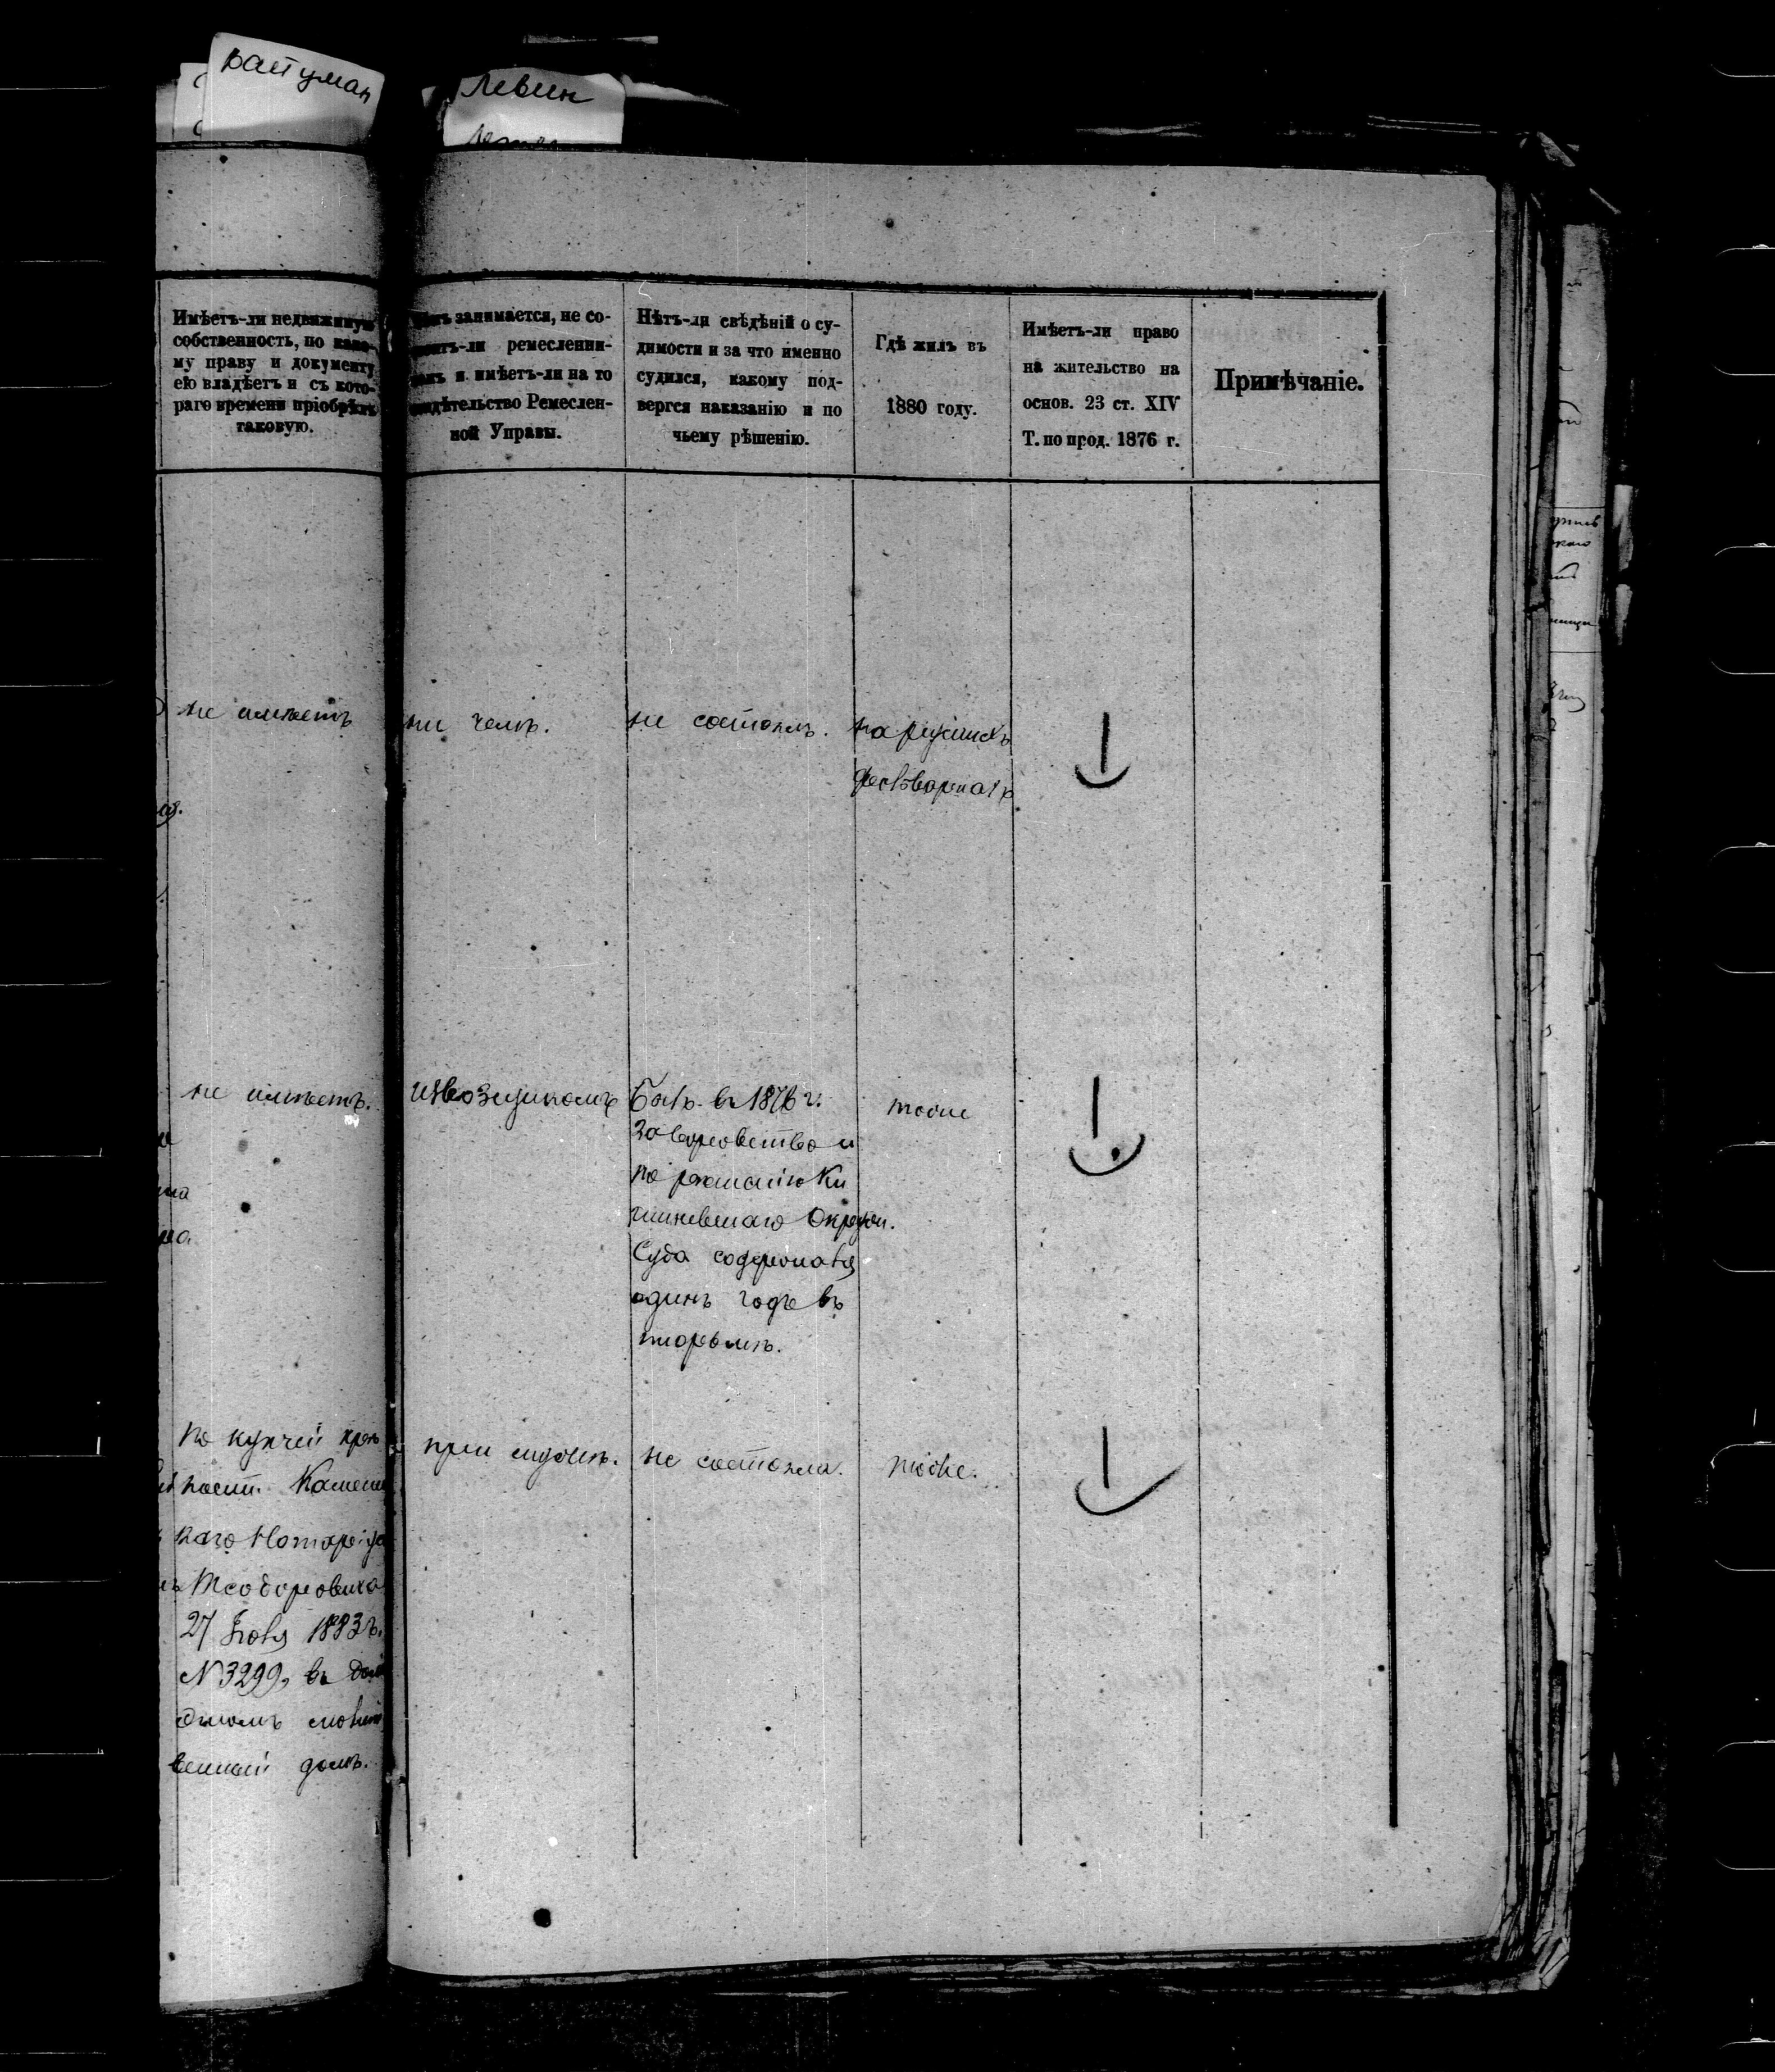 Левин
Имѣетъ-ли недвижимую
собственность, по како-
му праву и документу
ею владѣетъ и съ кото-
раго времени пріобрѣлъ
таковую.
занимается, не со-
ремесленни-
и имѣетъ-ли на то
Ремеслен-
ной Управы.
Нѣтъ-ли свѣдѣній о су-
димости и за что именно
судился, какому под-
вергся наказанію и по
чьему рѣшенію.
Гдѣ жилъ въ
1880 году.
Имѣетъ-ли право
на жительство на
основ. 23 ст. XIV
Т. по прод. 1876 г.
Примѣчаніе.
не имѣетъ
ни чемъ.
не состоялъ.
не имѣетъ.
извозщикомъ
Былъ въ 1876 г.
за воровство и
по рѣшенію Ки
шневскаго Окружн.
Суда содержался
одинъ годъ въ
тюрьмѣ.
тоже
по купчей крѣ
пост. Каменец
каго Нотаріуса
Теодоровича
27 1883 г.
N 3299, въ
домъ.
при мужѣ.
не состояла.
тоже.